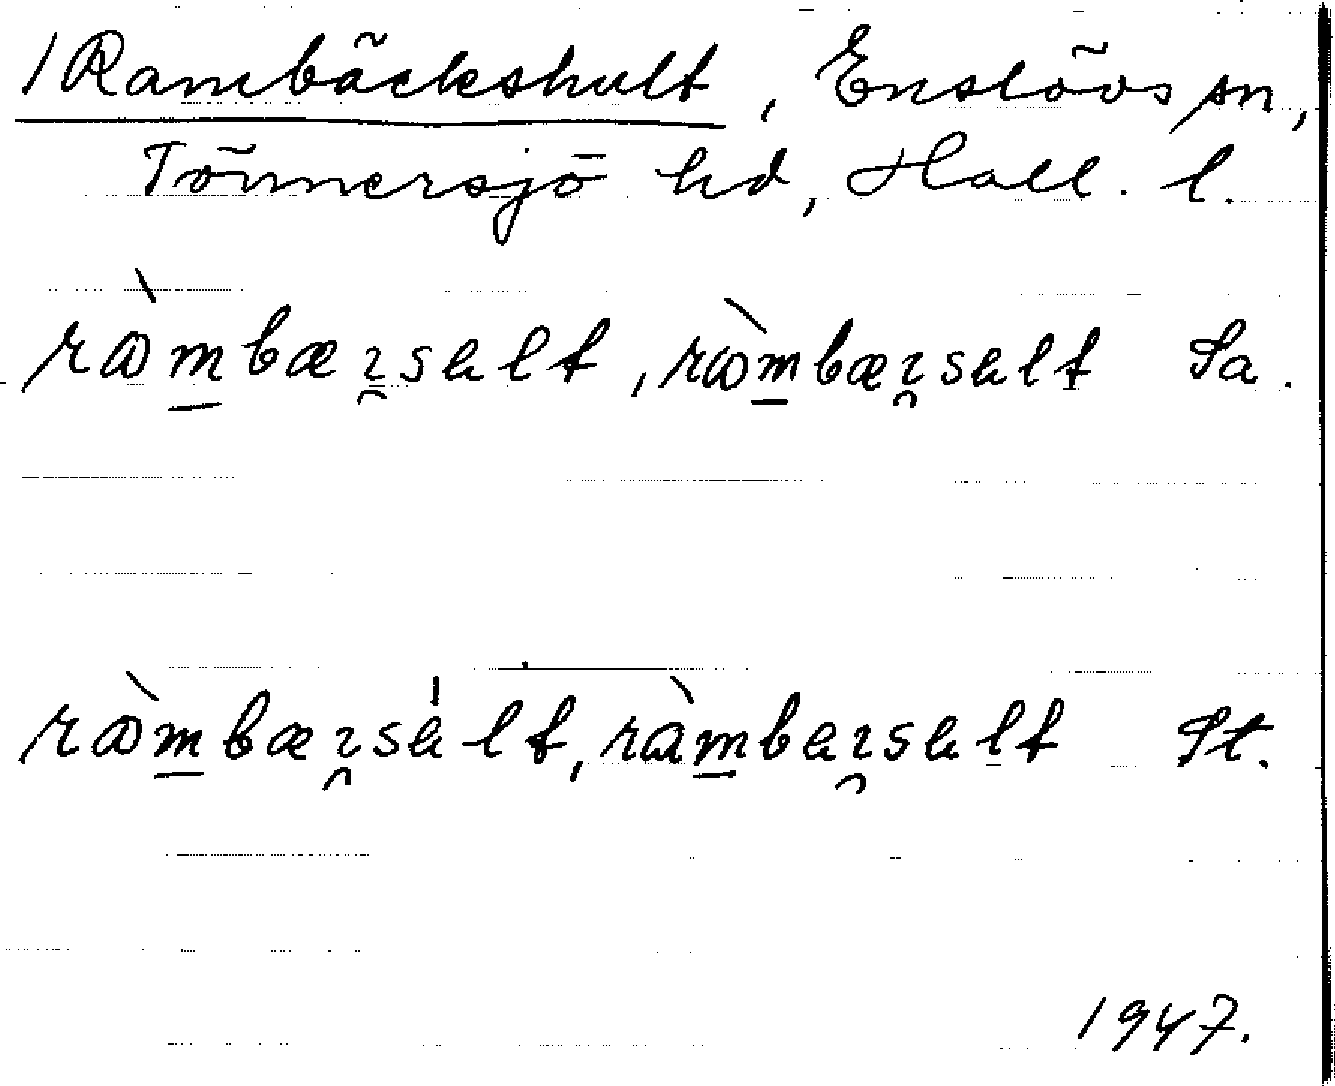 /Rambäckshult, Enslövs sn,
Tönnersjö hd, Hall. l.
ràm̲bæɿ̯sult, ràm̲bæɿ̯sult Sa.
ràm̲bæɿ̯súlt, ràm̲buɿ̯sult St.
1947.